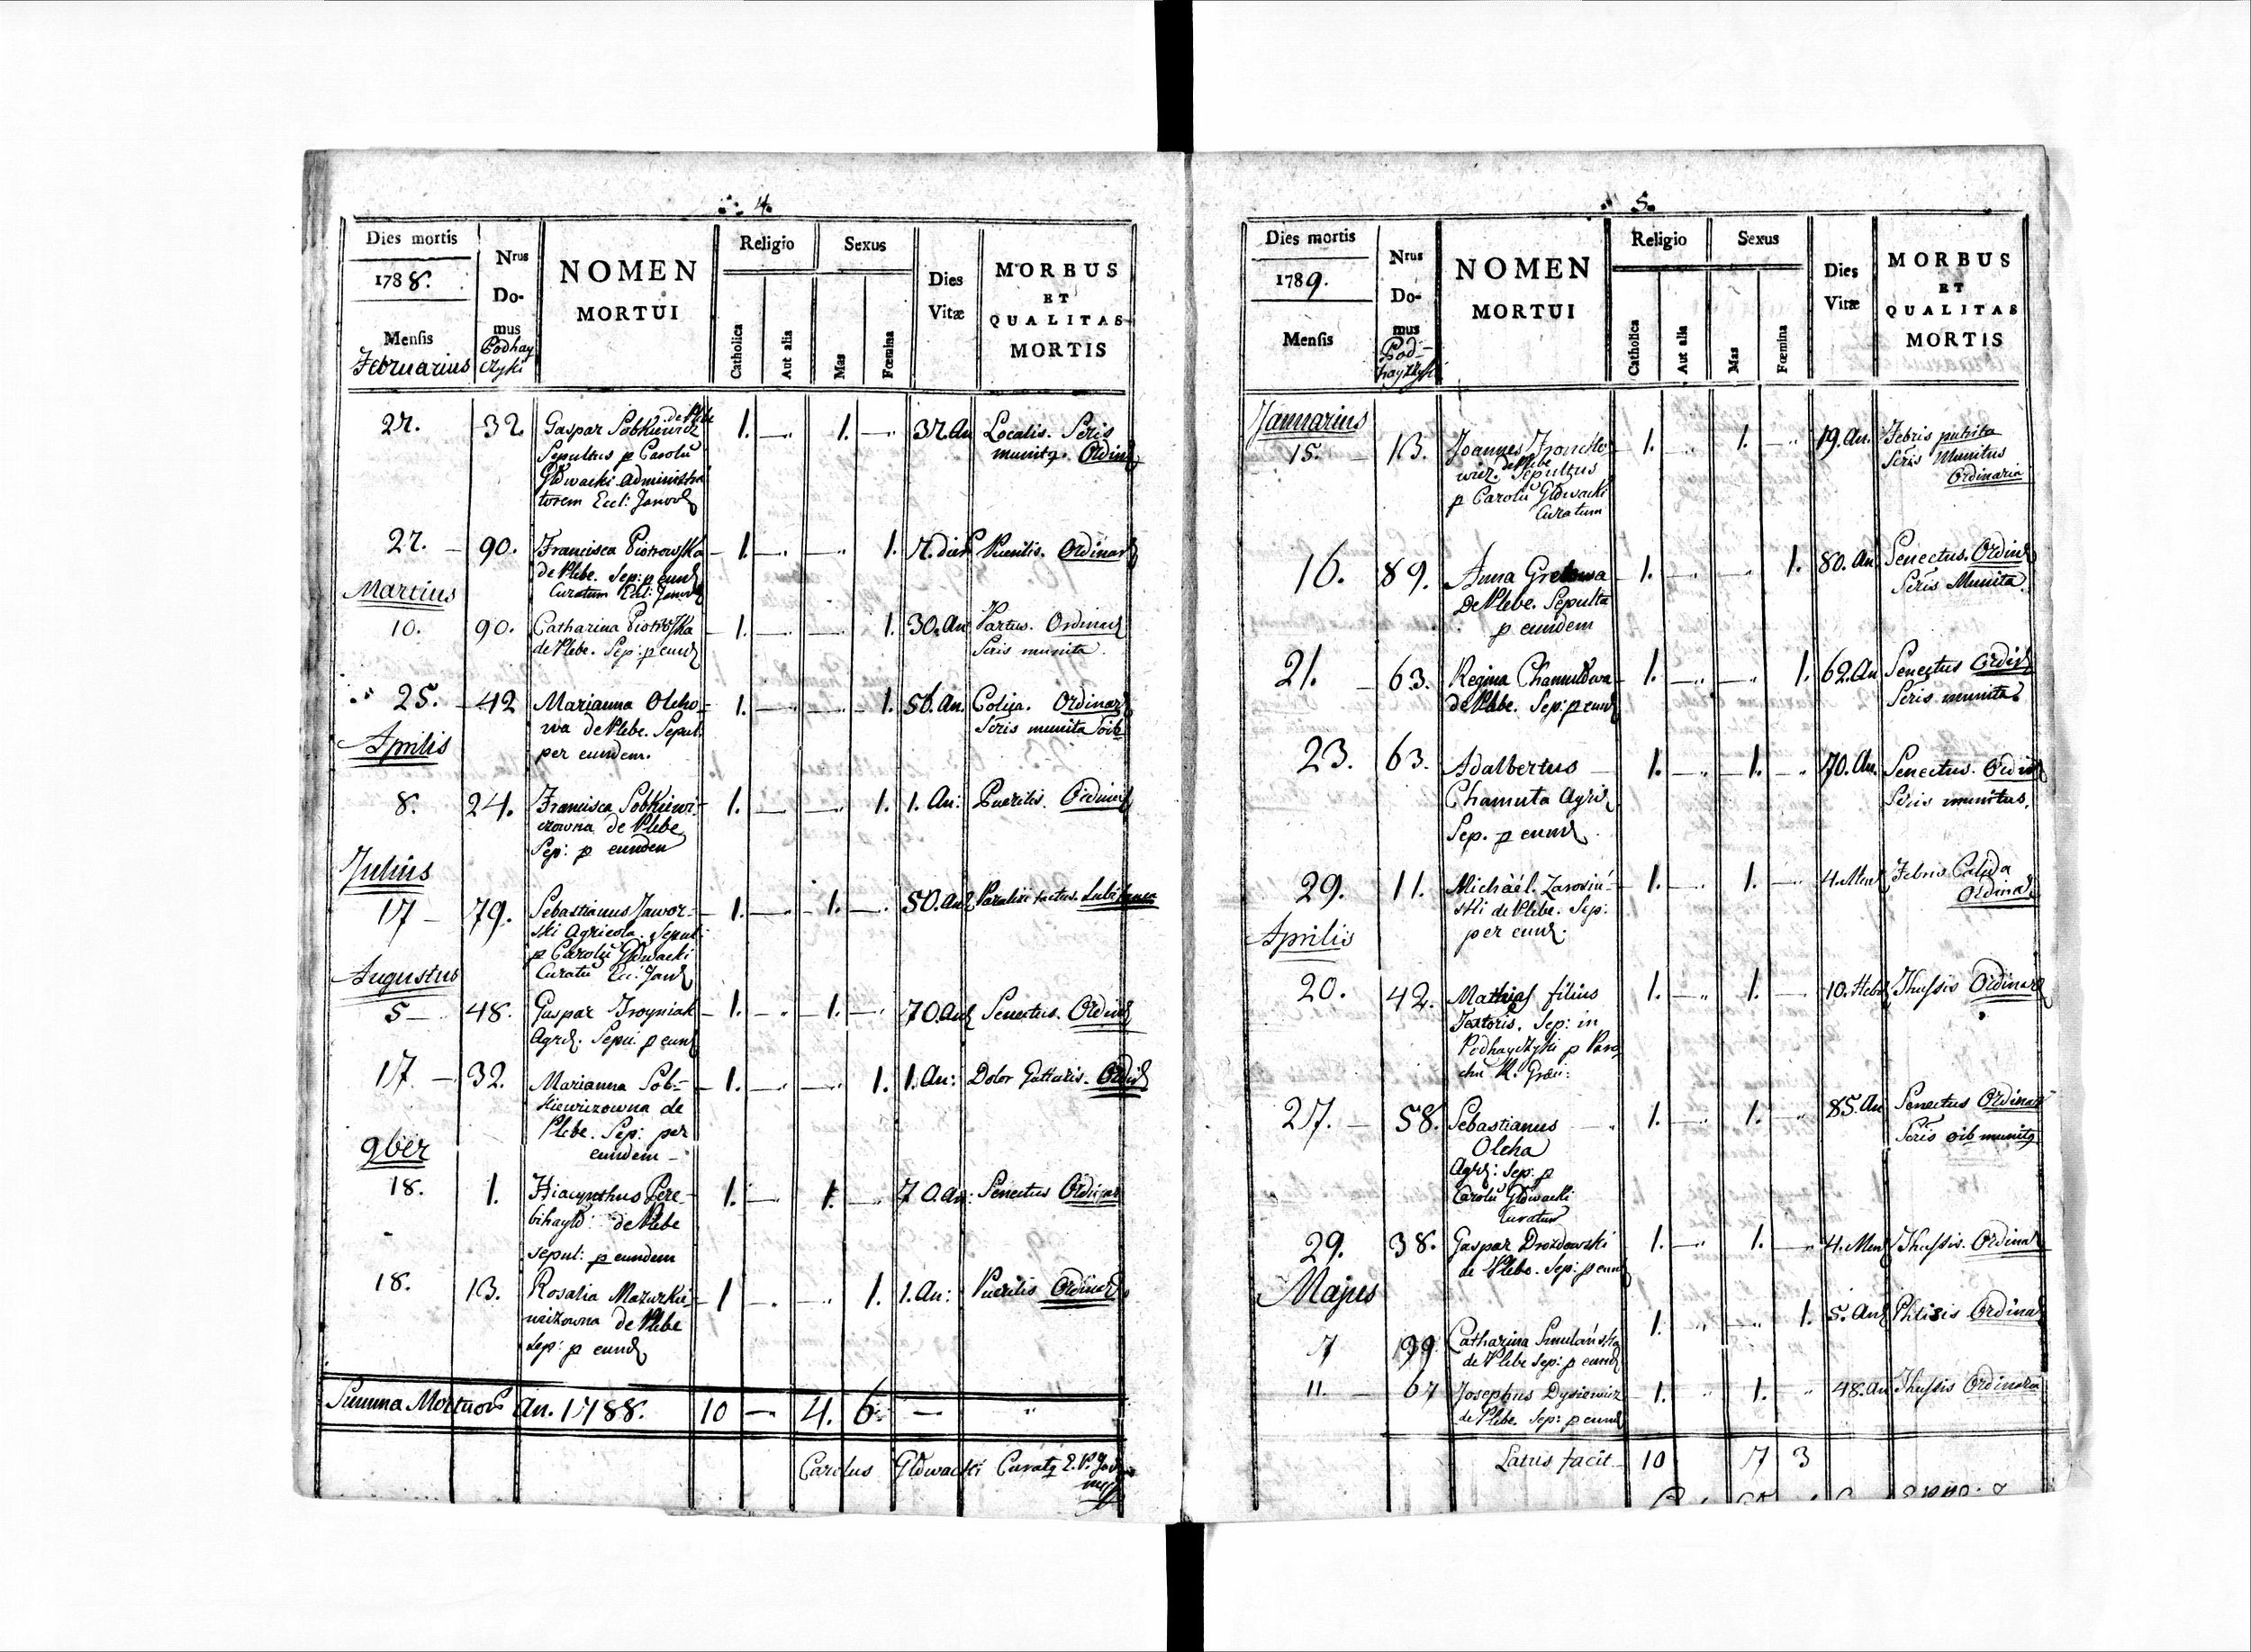 4.
Dies mortis
1788.
Mensis
Februarius
Nrus
Do-
mus
Podhay
czyki
NOMEN
MORTUI
Religio
Catholica
Aut alia
Sexus
Mas
Fœmina
Dies
Vitæ
MORBUS
ET
QUALITAS
MORTIS
27. 32. Gaspar Sobkiewicz de Plebe 1. 1. 37. An Localis. Scris
Sepultus p Carolu munitq. Ordin
Głowacki Administra
torem Eccl: Janov
27. 90. Francisca Piotrowska 1. 1. 7. dier Puerilis. Ordinar
de Plebe. Sep: p eund
Curatum Eccl: Janov
Martius
10. 90. Catharina Piotrowska 1. 1. 30. An Partus. Ordinar
de Plebe. Sep: p eund Scris munita.
25. 42 Marianna Olcho- 1. 1. 56. An. Colica. Ordinar
wa de Plebe. Sepul: Scris munita oib
per eundem.
Aprilis
8. 24. Francisca Sobkiewi- 1. 1. 1. An: Puerilis. Ordinar
czowna de Plebe
Sep: p eundem
Julius
17 79. Sebastianus Jawor- 1. 1. 50. An Paralixi tactus.
ski Agricola. Sepul:
p Carolu Głowacki
Curatu Ecc: Jan
Augustus
5 48. Gaspar Troyniak 1. 1. 70. An Senectus. Ordin
Agr. Sepu: p eund
17. 32. Marianna Sob- 1. 1. 1. An: Dolor Gutturis. Ordin
kiewiczowna de
Plebe. Sep: per
eundem
9ber
18. 1. Hiacynthus Pere- 1. 1. 70. An: Senectus Ordinar
bihayło: de Plebe
sepul: p eundem
18. 13. Rosalia Mazurkie- 1 1. 1. An: Puerilis Ordinar
wiczowna de Plebe
Sep: p eund
Summa Mortuor An. 1788. 10 4. 6
Carolus Głowacki Curatq E. P. Jan
mp
5.
Dies mortis
1789.
Mensis
Nrus
Do-
mus
Pod-
hayczyki
NOMEN
MORTUI
Religio
Catholica
Aut alia
Sexus
Mas
Fœmina
Dies
Vitæ
MORBUS
ET
QUALITAS
MORTIS
Januarius
15. 13. Joannes 1. 1. 19. An. Febris putrita
wicz. de Plebe Sepultus Scris Munitus
p Carolu Głowacki Ordinaria
Curatum
16. 89. Anna 1. 1. 80. An Senectus. Ordin
De Plebe. Sepulta Scris Munita.
p eundem
21. 63. Regina Chamułowa 1. 1. 62. An Senectus Ordin
de Plebe. Sep: p eund Scris munita
23. 63. Adalbertus 1. 1. 70. An. Senectus. Ordin
Chamuta Agri Scris munitus.
Sep. p eund
29. 11. Michaël Zarosiń- 1. 1. 4. Men Febris Calida
ski de Plebe. Sep: Ordinar
per eund.
Aprilis
20. 42. Mathias filius 1. 1. 10. Hebd Thussis Ordinar
Textoris. Sep: in
Podhayczyki p Paro
chu R. Gräu:
27. 58. Sebastianus 1. 1. 85. An Senectus Ordinar
Olcha Scris oib munitq
Agr: Sep: p
Carolu Głowacki
Curatum
29. 38. Gaspar Drozdowski 1. 1. 4. Men Thussis. Ordinar
de Plebe. Sep: p eund
Majus
7 99. Catharina Smulańska 1. 1. 5. An Phtisis Ordinar
de Plebe Sep: p eund
11. 67 Josephus Dysiewicz 1. 1. 48. An Thussis Ordinaria
de Plebe. Sep: p eund
Latus facit 10 7 3